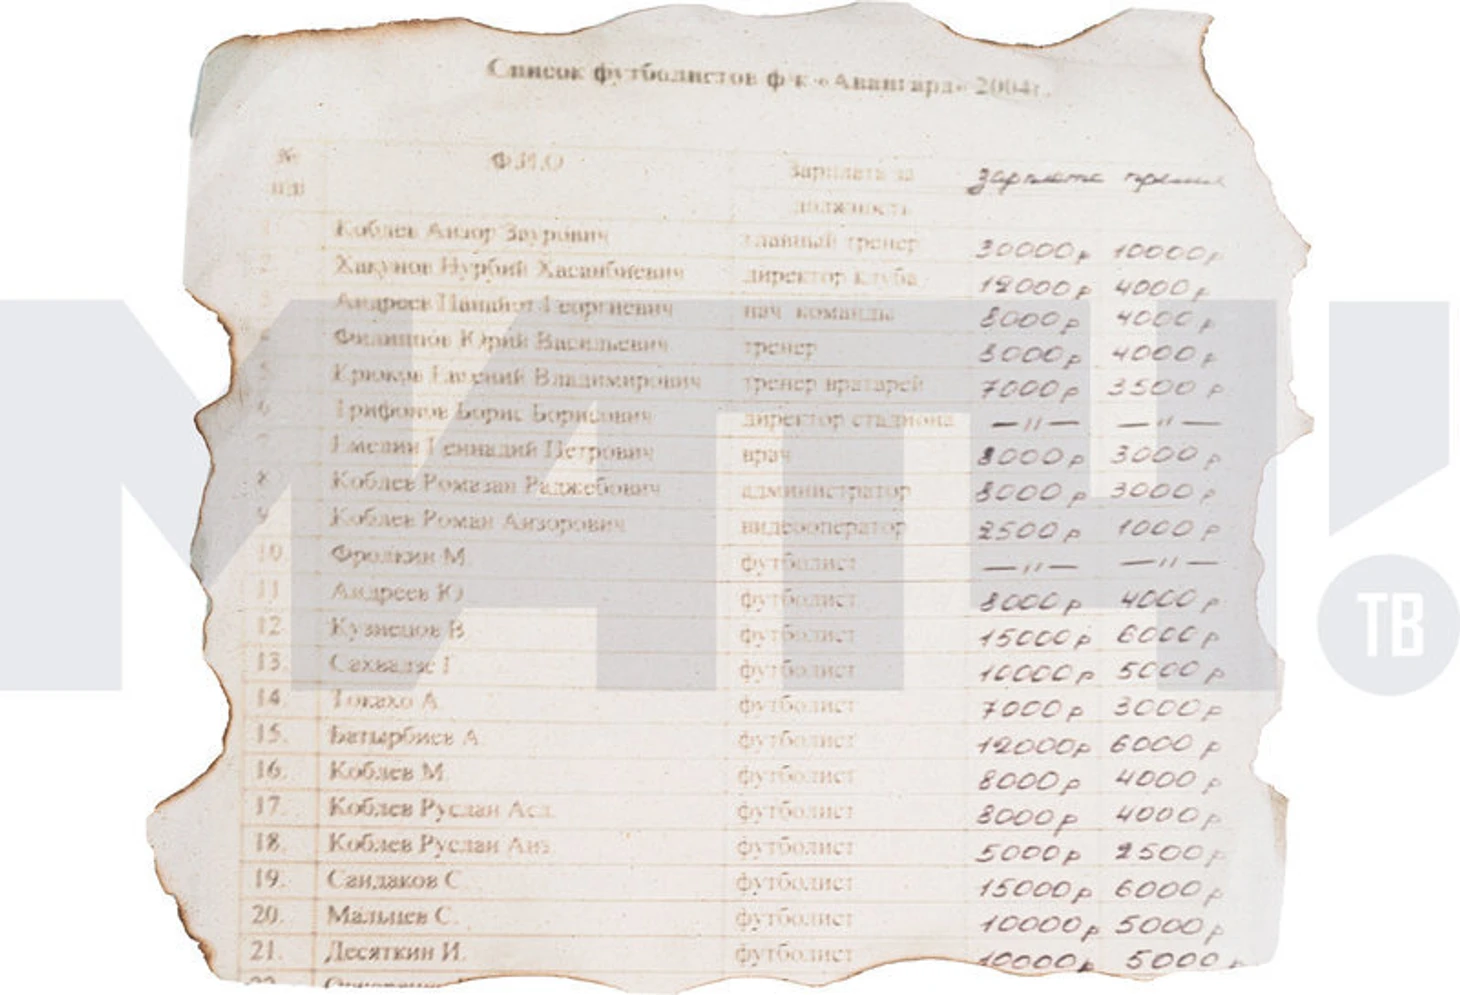 Список футболистов ф к «Авангард» 2004г.
№ п/п Ф.И.О Зарплата за должность зарплата премия
1 Коблев Анзор Заурович главный тренер 30000р 10000р
2 Хакунов Нурбий Хасанбиевич директор клуба 12000р 4000р
3 Андреев Панайот Георгиевич нач команды 8000р 4000р
4 Филиппов Юрий Васильевич тренер 8000р 4000р
5 Крюков Евгений Владимирович тренер вратарей 7000р 3500р
6 Трифонов Борис Борисович директор стадиона —"— —"—
7 Емелин Геннадий Петрович врач 8000р 3000р
8 Коблев Ромазан Раджебович администратор 8000р 3000р
9 Коблев Роман Анзорович видеооператор 2500р 1000р
10. Фролкин М футболист —"— —"—
11 Андреев Ю футболист 8000р 4000р
12. Кузнецов В футболист 15000р 6000р
13. Сахвадзе Г футболист 10000р 5000р
14. Токахо А. футболист 7000р 3000р
15. Батырбиев А футболист 12000р 6000р
16. Коблев М. футболист 8000р 4000р
17. Коблев Руслан Асл. футболист 8000р 4000р
18. Коблев Руслан Анз. футболист 5000р 2500р
19. Сандаков С футболист 15000р 6000р
20. Мальцев С. футболист 10000р 5000р
21. Десяткин И. футболист 10000р 5000р
22.
МАТЧ!
ТВ